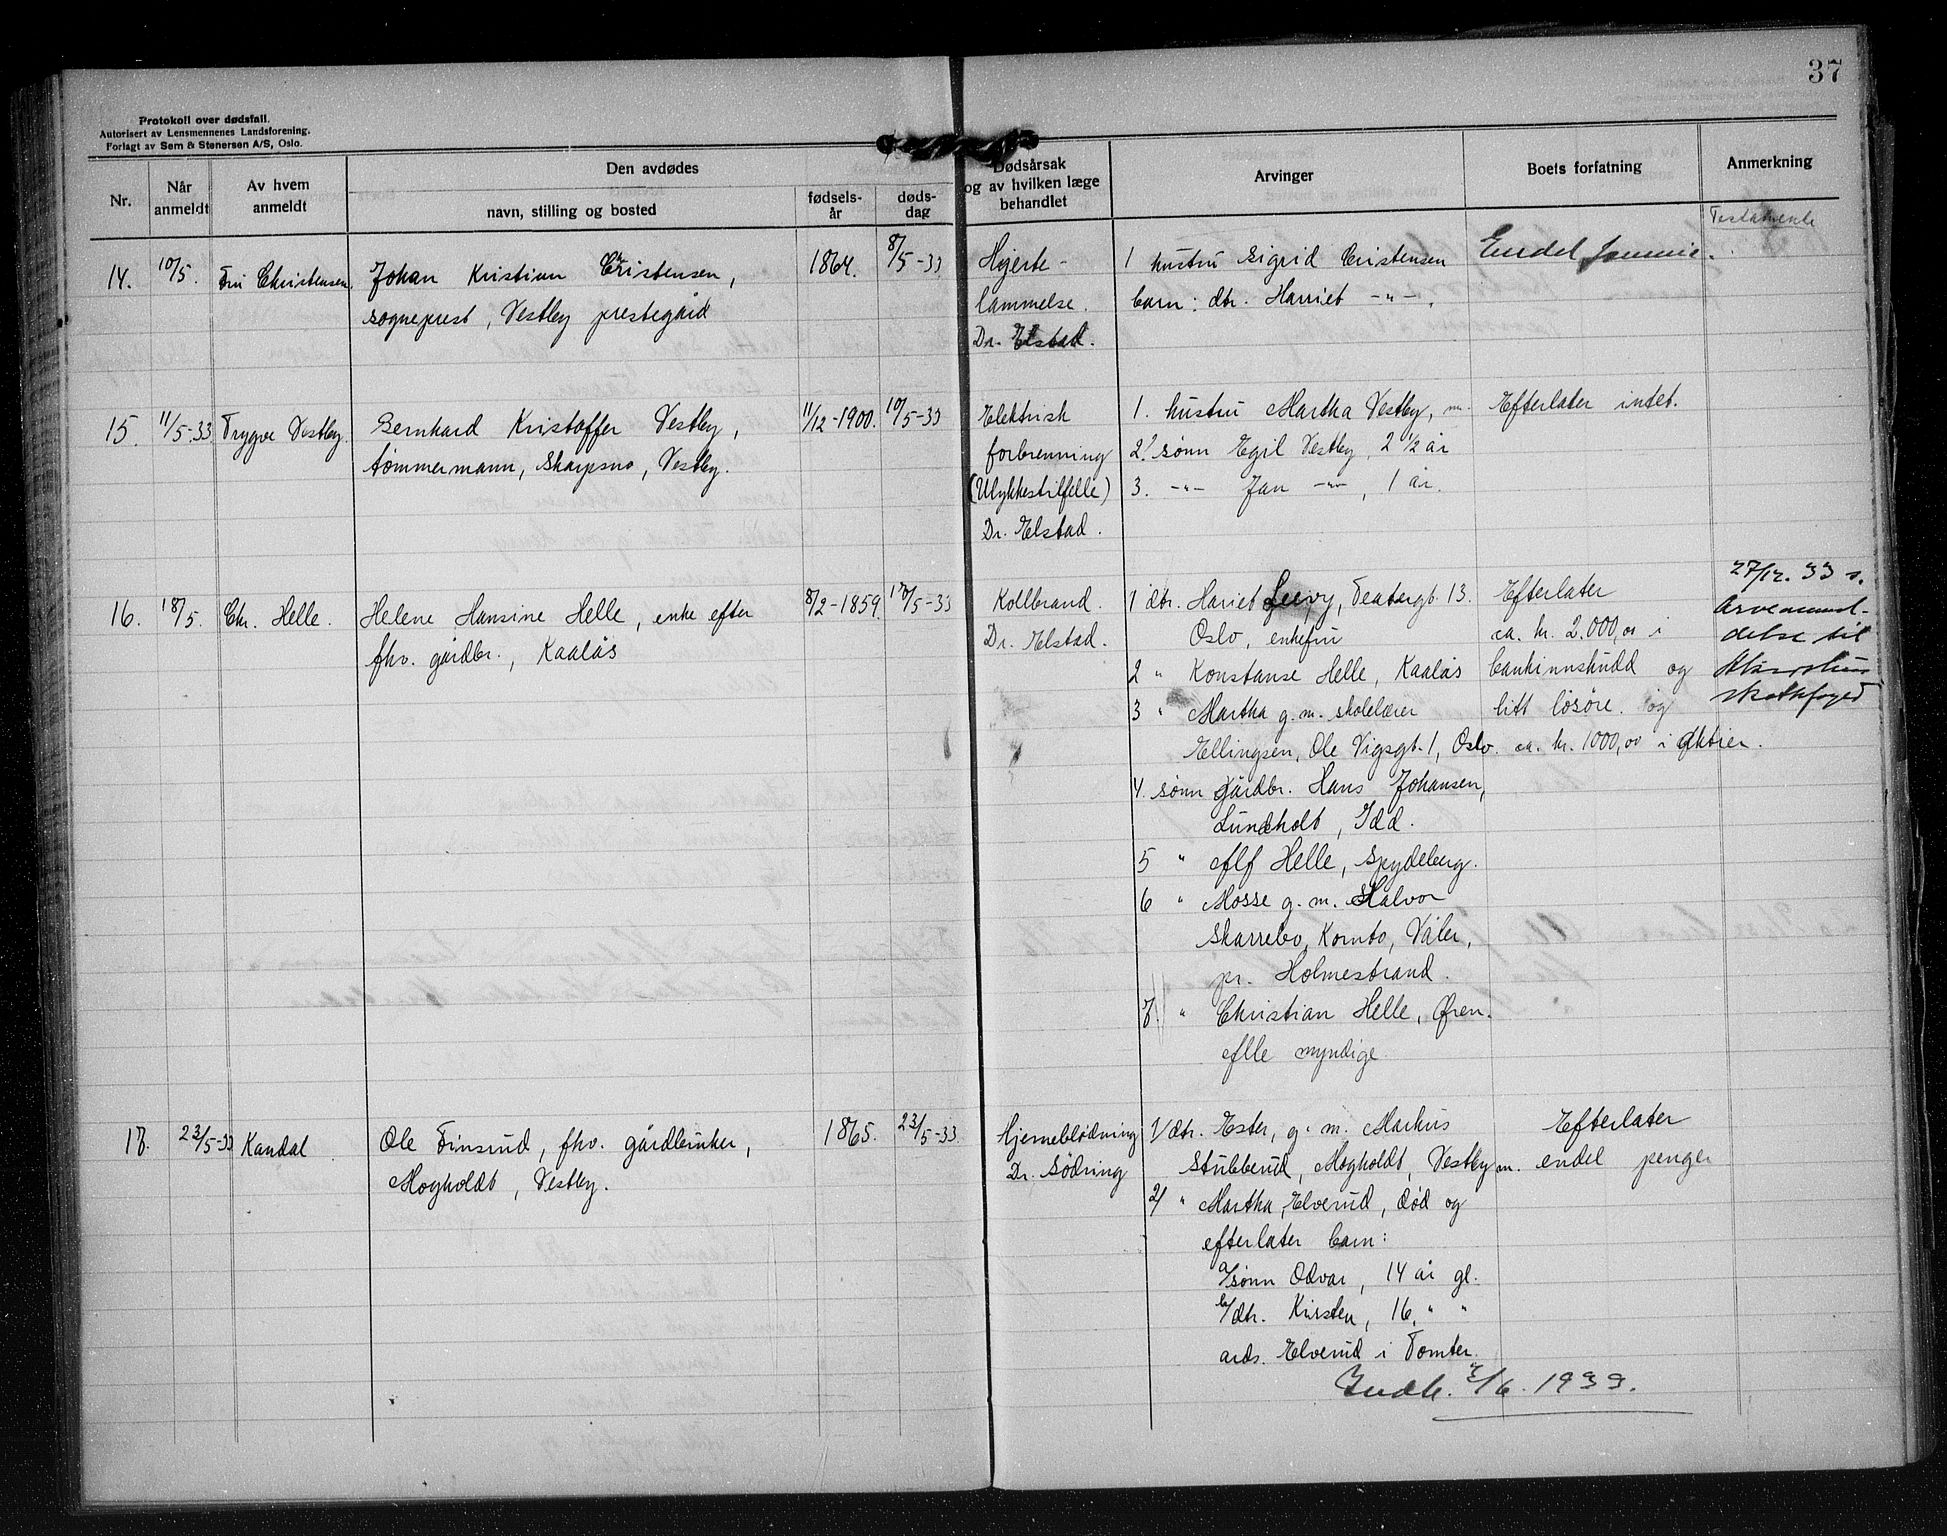 37
Protokoll over dødsfall.
Autorisert av Lensmennenes Landsforening.
Forlagt av Sem & Stenersen A/S, Oslo.
Nr.
Når anmeldt
Av hvem anmeldt
Den avdødes
navn, stilling og bosted
fødselsår
dødsdag
Dødsårsak
og av hvilken læge
behandlet
Arvinger
Boets forfatning
Anmerkning
14. 10/5. Fru Christensen. Johan Kristian Christensen, 1864. 8/5-33
sogneprest, Vestby prestegård
Hjerte-
lammelse.
Dr. Elstad.
1 hustru Sigrid Cristensen
barn: dtr. Harriet -"-.
Endel
Testamente
15. 11/5-33 Trygve Vestby. Bernhard Kristoffer Vestby, 11/12-1900. 10/5-33
tømmermann, Skarpsno, Vestby.
Elektrisk
forbrenning
(Ulykkestilfelle)
Dr. Elstad.
1. hustru Martha Vestby, m.
2. sønn Egil Vestby, 2 1/2 år
3. -"- Jan -"-, 1 år.
Efterlater intet.
16. 18/5. Chr. Helle. Helene Hansine Helle, enke efter 8/2-1859. 17/5-33
fhv. gårdbr., Kaalås
Kollbrand.
Dr. Elstad.
1 dtr. Hariet Leevy, Teatergt. 13.
Oslo, enkefru
2 " Konstanse Helle, Kaalås
3 " Martha g.m. skolelærer
Ellingsen, Ole Vigsgt. 1, Oslo.
4. sønn gårdbr. Hans Johansen,
Lundeholt, Idd.
5 " Alf Helle, Spydeberg.
6 " Mosse g.m. Halvor
Skarrebo, Kombo, Våler,
pr. Holmestrand.
7. " Christian Helle, Øren.
Alle myndige.
Efterlater
ca. kr. 2.000,00 i
bankinnskudd og
litt løsøre. og
ca. kr. 1000,00 i aktier.
27/12. 33 s.
arveanmel-
delse til
skattefoged
17. 23/5-33 Kandal Ole Finsrud, fhv. gårdbruker, 1865. 23/5-33
Mogholdt, Vestby.
Hjerneblødning
Dr. Sødring
1/ dtr. Ester, g.m. Markus
Stubberud, Mogholdt, Vestby m.
2/ " Martha, Elverud, død og
efterlater barn:
a/ sønn Odvar, 14 år gl.
b/ dtr. Kirsten, 16 " "
ards. Elverud i Tomter.
Efterlater
endel penger
Indb. 2/6. 1933.